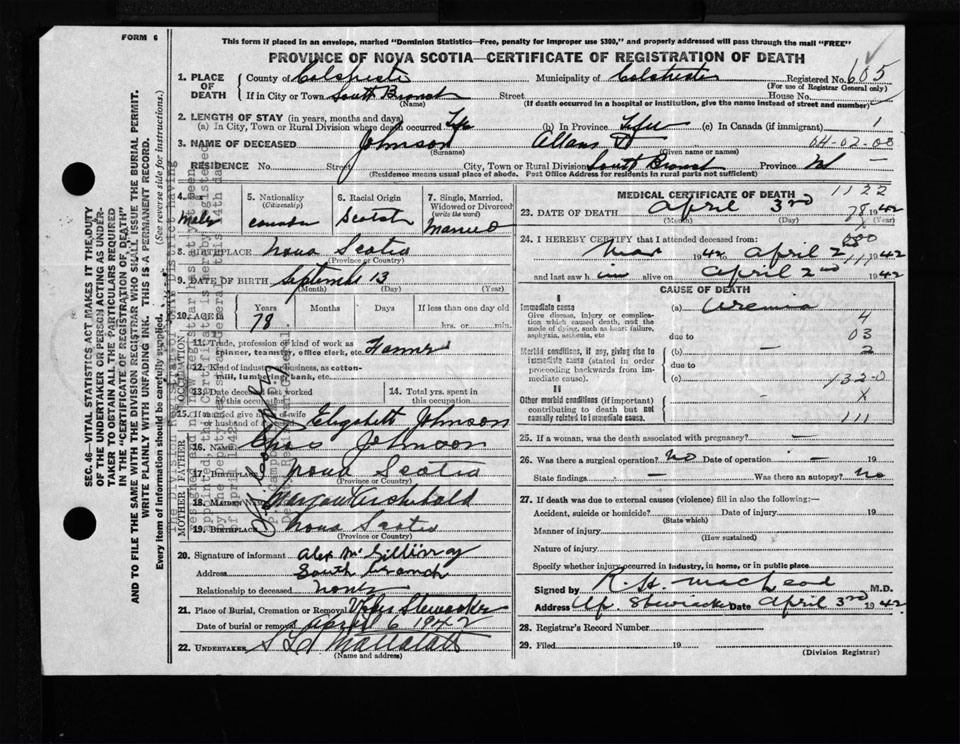 FORM 6
This form if placed in an envelope, marked "Dominion Statistics—Free, penalty for improper use $300," and properly addressed will pass through the mail "FREE"
PROVINCE OF NOVA SCOTIA—CERTIFICATE OF REGISTRATION OF DEATH
SEC. 46—VITAL STATISTICS ACT MAKES IT THE DUTY
OF THE UNDERTAKER OR PERSON ACTING AS UNDER-
TAKER TO OBTAIN ALL THE PARTICULARS REQUIRED
IN THE "CERTIFICATE OF REGISTRATION OF DEATH"
AND TO FILE THE SAME WITH THE DIVISION REGISTRAR WHO SHALL ISSUE THE BURIAL PERMIT.
WRITE PLAINLY WITH UNFADING INK. THIS IS A PERMANENT RECORD.
Every item of information should be carefully supplied. (See reverse side for instructions.)
1. PLACE OF DEATH
County of Colchester Municipality of Colchester Registered No. 605
(For use of Registrar General only)
If in City or Town South Branch Street House No.
(Name) (If death occurred in a hospital or institution, give the name instead of street and number)
2. LENGTH OF STAY (in years, months and days)
(a) In City, Town or Rural Division where death occurred Life (b) In Province Life (c) In Canada (if immigrant) 1
3. NAME OF DECEASED Johnson 04-02-00
(Surname) (Given name or names)
RESIDENCE No. Street City, Town or Rural Division South Branch Province
(Residence means usual place of abode. Post Office Address for residents in rural parts not sufficient)
4. Male
5. NATIONALITY (Citizenship)
6. Racial Origin Scotch
7. Single, Married, Widowed or Divorced (write the word) Married
8. BIRTHPLACE Nova Scotia
(Province or Country)
9. DATE OF BIRTH September 13
(Month) (Day) (Year)
10. AGE Years 78 Months Days If less than one day old hrs. or min.
OCCUPATION
11. Trade, profession or kind of work as spinner, teamster, office clerk, etc. Farmer
12. Kind of industry or business, as cotton-mill, lumbering, bank, etc.
13. Date deceased last worked at this occupation
14. Total yrs. spent in this occupation
15. If married give name of wife or husband of deceased Elizabeth Johnson
FATHER
16. Name Chas Johnson
17. BIRTHPLACE Nova Scotia
(Province or Country)
MOTHER
18. Maiden Name Archibald
19. BIRTHPLACE Nova Scotia
(Province or Country)
20. Signature of informant Alex McGillivray
Address South Branch
Relationship to deceased none
21. Place of Burial, Cremation or Removal Upper Stewiacke
Date of burial or removal April 6 1942
22. UNDERTAKER
(Name and address)
MEDICAL CERTIFICATE OF DEATH 1122
23. DATE OF DEATH April 3rd 78 1942
(Month) (Day)
24. I HEREBY CERTIFY that I attended deceased from:
Mar 1942 to April 2nd 1942
and last saw him alive on April 2nd 1942
CAUSE OF DEATH
I
Immediate cause
Give disease, injury or complication which caused death, not the mode of dying, such as heart failure, asphyxia, asthenia, etc
(a) Uremia
4
due to 03
Morbid conditions, if any, giving rise to immediate cause (stated in order proceeding backwards from immediate cause).
(b) — 2
due to
(c) 132-0
II
Other morbid conditions (if important) contributing to death but not causally related to immediate cause.
x
111
25. If a woman, was the death associated with pregnancy? —
26. Was there a surgical operation? No Date of operation — 19
State findings — Was there an autopsy? No
27. If death was due to external causes (violence) fill in also the following:—
Accident, suicide or homicide? Date of injury 19
(State which)
Manner of injury
(How sustained)
Nature of injury
Specify whether injury occurred in industry, in home, or in public place
Signed by R. H. MacLeod M.D.
Address Up. Stewiacke Date April 3rd 1942
28. Registrar's Record Number
29. Filed 19
(Division Registrar)